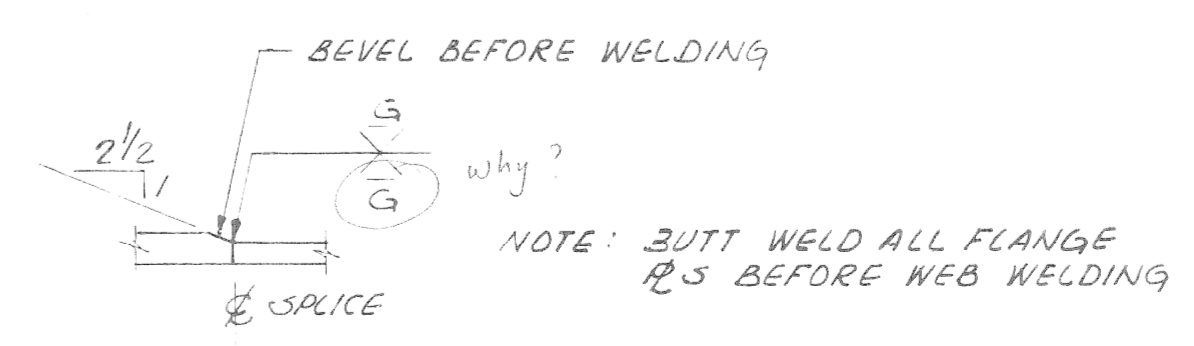 BEVEL BEFORE WELDING
G
2 1/2
1
G
why?
NOTE: BUTT WELD ALL FLANGE
PLS BEFORE WEB WELDING
CL SPLICE